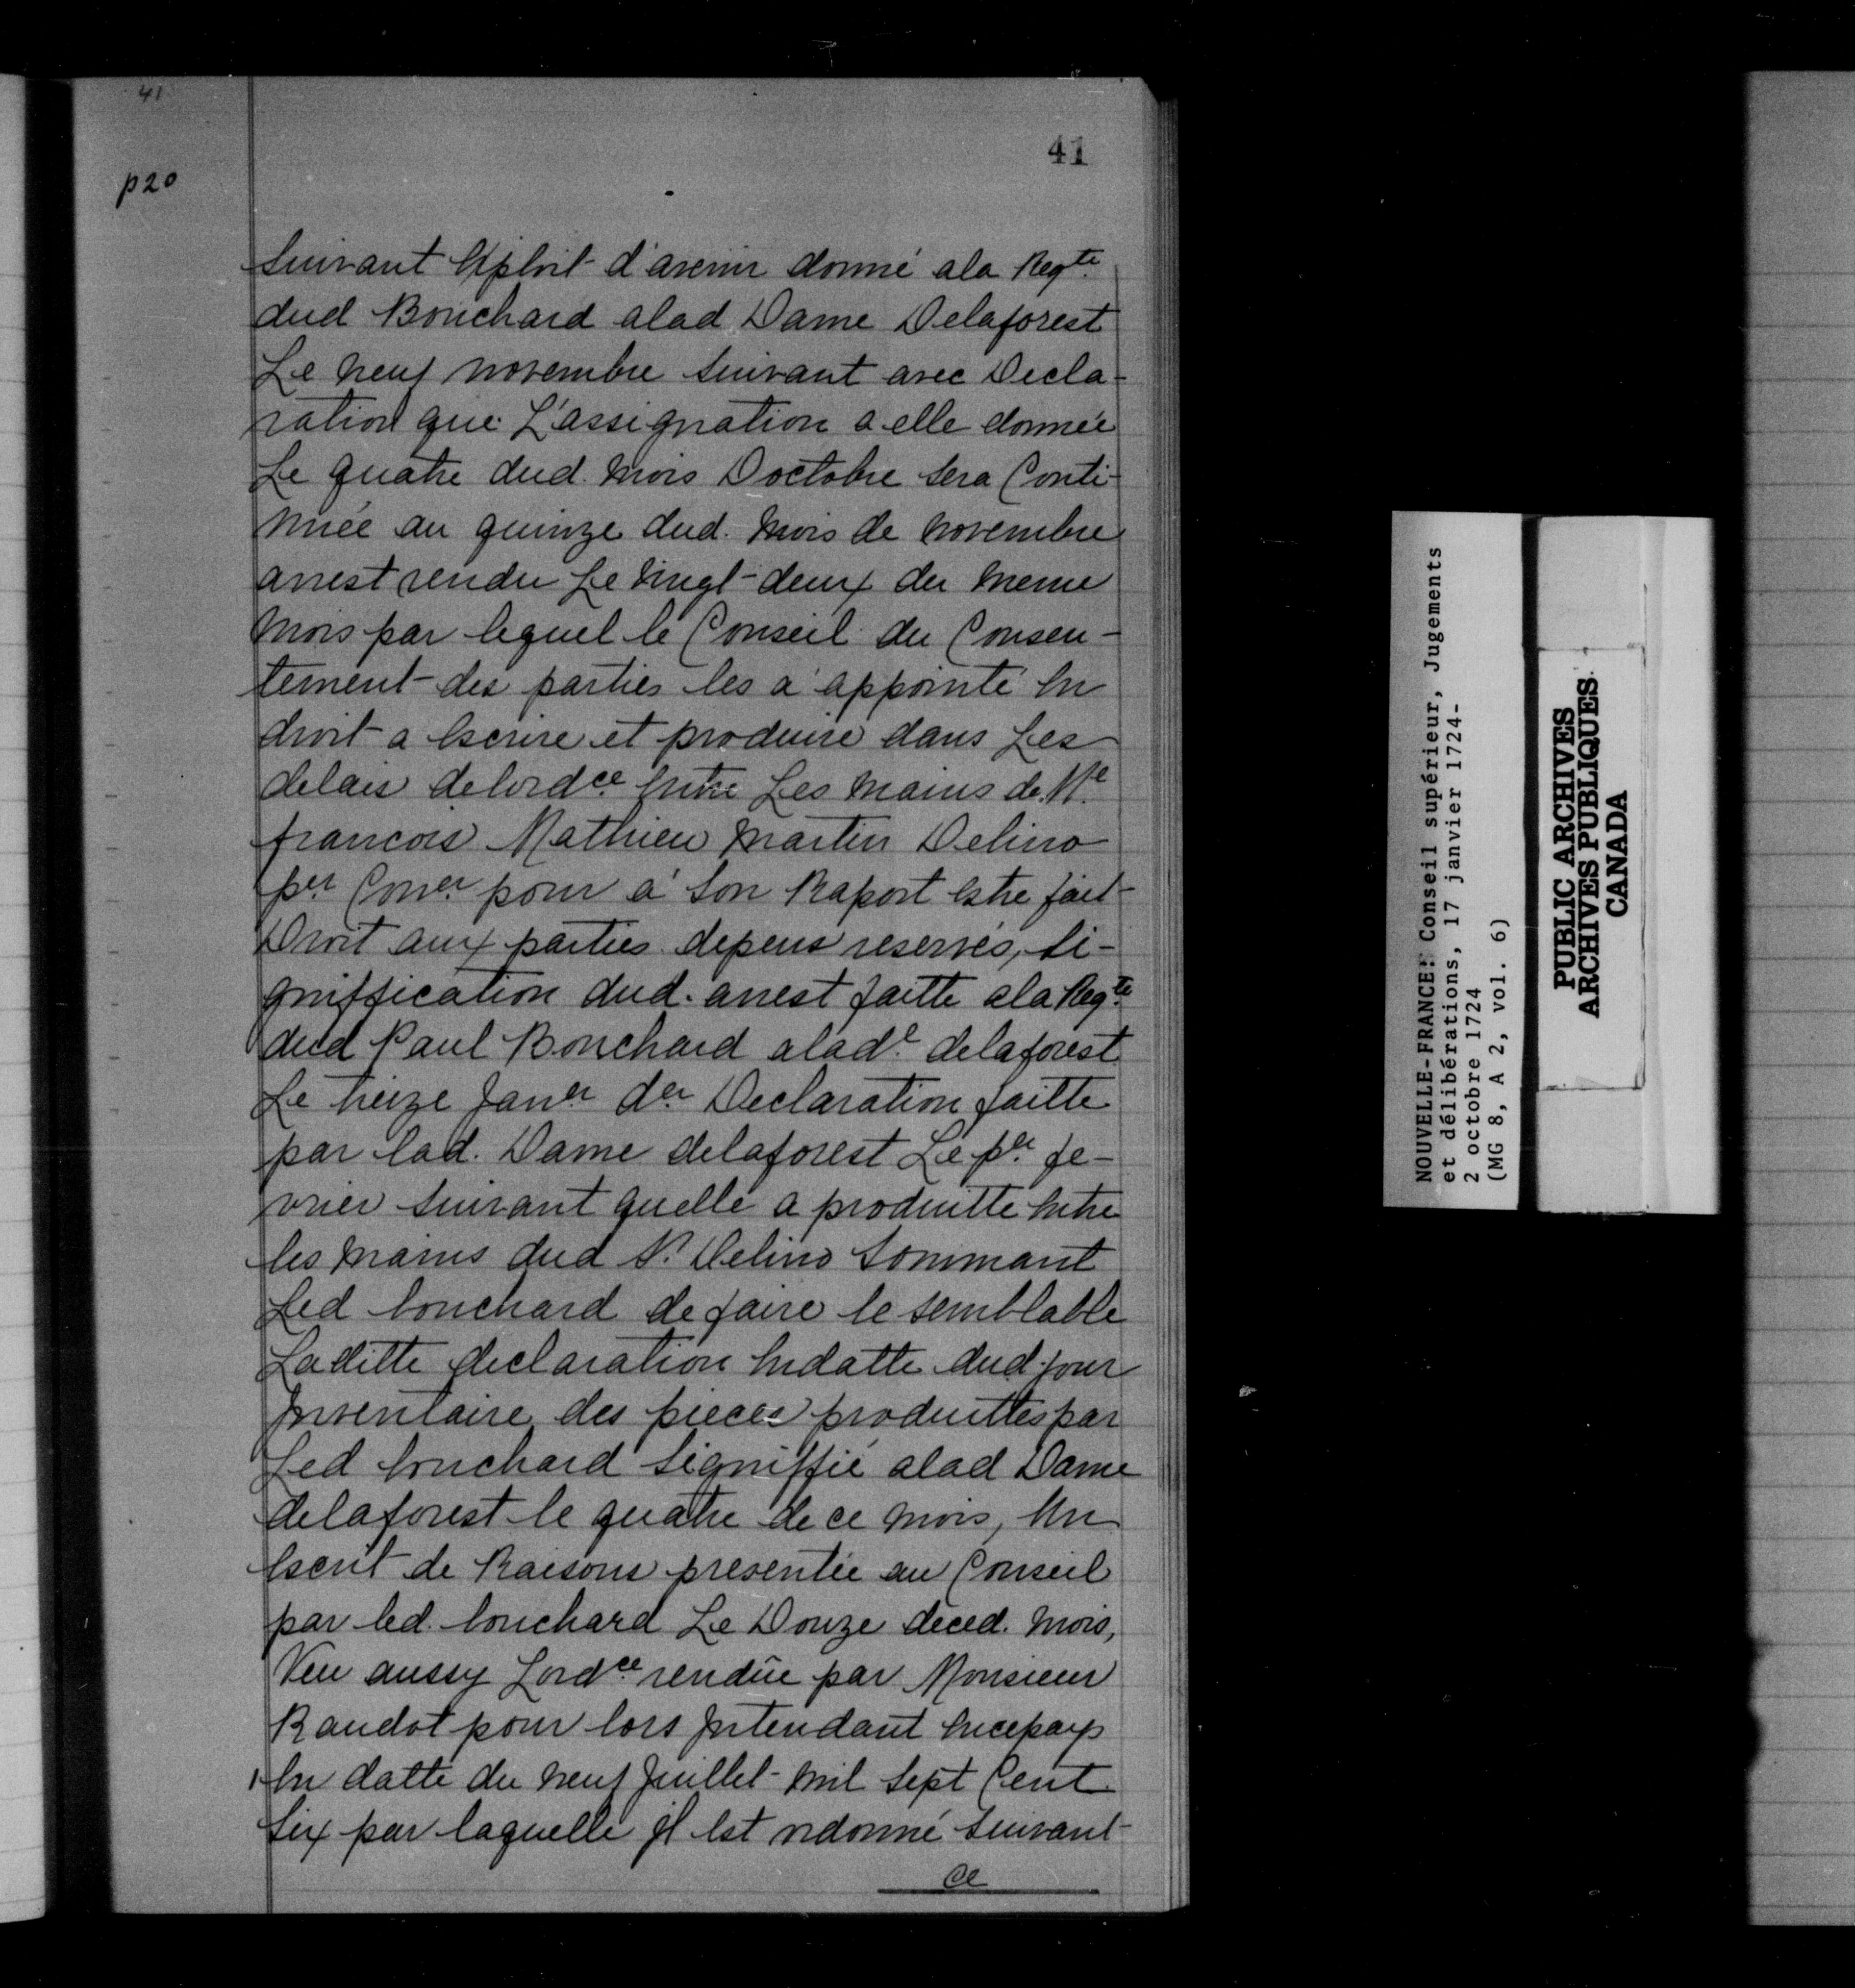 41
41
p20
Suivant Exploit d'avenir donné ala Reqte
dud Bouchard alad Dame Delaforest
Le neuf novembre suivant avec Decla-
ration que L'assignation a elle donnée
Le quatre dud. mois Doctobre sera Conti-
nuée au quinze dud. mois de novembre
arrest rendu Le vingt-deux du meme
mois par lequel le Conseil du Consen-
tement des parties les a appointé En
droit a Escrire et produire dans Les
delais delordce Entre Les mains de Me
francois Mathieu Martin Delino
per Coner pour a Son Raport Estre fait
Droit aux parties depens reservés, Si-
gniffication dud. arrest faitte ala Reqte
dud Paul Bouchard alade delaforest
Le treize Janer der Declaration faitte
par lad. Dame delaforest Le per fe-
vrier suivant quelle a produitte Entre
les mains dud S. Delino Sommant
Led bouchard de faire le semblable
Laditte declaration Endatte dud jour
Inventaire des pieces produittes par
Led bouchard Signiffié alad Dame
delaforest le quatre de ce mois, Un
Escrit de Raisons presentée au Conseil
par led. bouchard Le Douze deced. mois,
Veu aussy Lordce rendüe par Monsieur
Raudot pour lors Intendant Encepays
En datte du neuf Juillet mil Sept Cent
Six par laquelle Il Est ordonné Suivant
Ce
NOUVELLE-FRANCE: Conseil supérieur, Jugements
et délibérations, 17 janvier 1724-
2 octobre 1724
(MG 8, A 2, vol. 6)
PUBLIC ARCHIVES
ARCHIVES PUBLIQUES
CANADA